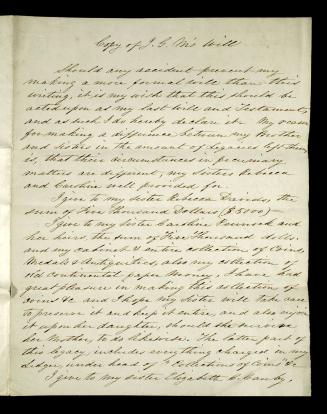 Copy of J. G. M's Will
Should any accident prevent my
making a more formal will than this
writing, it is my wish that this should be
acted upon as my last Will and Testament,
and as such I do hereby declare it. My reason
for making a difference between my Brother
and Sisters in the amount of legacies left them,
is, that their circumstances in pecuniary
matters are different, my Sisters Rebecca
and Caroline well provided for.
I give to my sister Rebecca Davids, the
sum of Five Thousand Dollars ($5000)—
I give to my Sister Caroline Pennock and
her heirs, the sum of Five Thousand dolls.
and my cabinet & entire collection of Coins,
Medals & Antiquities, also my collection of
old continental paper money, I have had
great pleasure in making this collection of
coins &c and I hope my Sister will take care
to preserve it and keep it entire, and also enjoin
it upon her daughter, should she survive
her Mother, to do likewise. The latter part of
this legacy, includes everything charged in my
Ledger, under head of "Collections of Coins" &c
I give to my sister Elizabeth C. Canby,